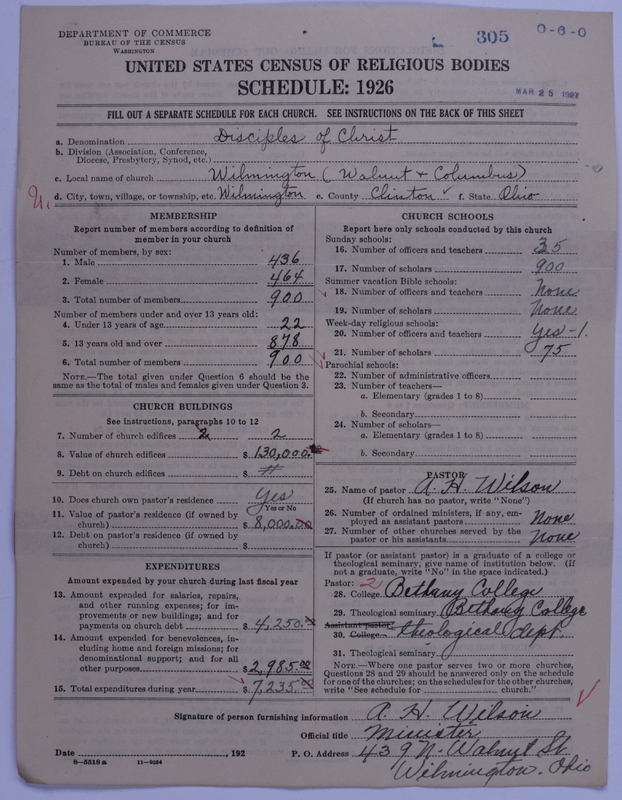 DEPARTMENT OF COMMERCE
BUREAU OF THE CENSUS
WASHINGTON
305
0-6-0
UNITED STATES CENSUS OF RELIGIOUS BODIES
SCHEDULE: 1926
MAR 25 1927
FILL OUT A SEPARATE SCHEDULE FOR EACH CHURCH. SEE INSTRUCTIONS ON THE BACK OF THIS SHEET
a. Denomination Disciples of Christ
b. Division (Association, Conference,
Diocese, Presbytery, Synod, etc.)
c. Local name of church Wilmington (Walnut + Columbus)
d. City, town, village, or township, etc. Wilmington e. County Clinton f. State Ohio
MEMBERSHIP
Report number of members according to definition of
member in your church
Number of members, by sex:
1. Male 436
2. Female 464
3. Total number of members 900
Number of members under and over 13 years old:
4. Under 13 years of age 22
5. 13 years old and over 878
6. Total number of members 900
NOTE.—The total given under Question 6 should be the
same as the total of males and females given under Question 3.
CHURCH BUILDINGS
See instructions, paragraphs 10 to 12
7. Number of church edifices 2 2
8. Value of church edifices $ 130,000.
9. Debt on church edifices $ #
10. Does church own pastor's residence Yes
Yes or No
11. Value of pastor's residence (if owned by
church) $ 8,000.00
12. Debt on pastor's residence (if owned by
church) $
EXPENDITURES
Amount expended by your church during last fiscal year
13. Amount expended for salaries, repairs,
and other running expenses; for im-
provements or new buildings; and for
payments on church debt $ 4,250.00
14. Amount expended for benevolences, in-
cluding home and foreign missions; for
denominational support; and for all
other purposes $ 2,985.00
15. Total expenditures during year $ 7,235.00
CHURCH SCHOOLS
Report here only schools conducted by this church
Sunday schools:
16. Number of officers and teachers 35
17. Number of scholars 900
Summer vacation Bible schools:
18. Number of officers and teachers None
19. Number of scholars None
Week-day religious schools:
20. Number of officers and teachers Yes - 1.
21. Number of scholars 75
Parochial schools:
22. Number of administrative officers
23. Number of teachers—
a. Elementary (grades 1 to 8)
b. Secondary
24. Number of scholars—
a. Elementary (grades 1 to 8)
b. Secondary
PASTOR
25. Name of pastor A. H. Wilson
(If church has no pastor, write "None")
26. Number of ordained ministers, if any, em-
ployed as assistant pastors None
27. Number of other churches served by the
pastor or his assistants None
If pastor (or assistant pastor) is a graduate of a college or
theological seminary, give name of institution below. (If
not a graduate, write "No" in the space indicated.)
Pastor: 2
28. College Bethany College
29. Theological seminary Bethany College
Assistant pastor:
30. College Theological Dept.
31. Theological seminary
NOTE.—Where one pastor serves two or more churches,
Questions 28 and 29 should be answered only on the schedule
for one of the churches; on the schedules for the other churches,
write "See schedule for church."
Signature of person furnishing information A. H. Wilson
Official title Minister
Date , 192 P. O. Address 439 N. Walnut St.
8—5518 a 11—9254
Wilmington, Ohio